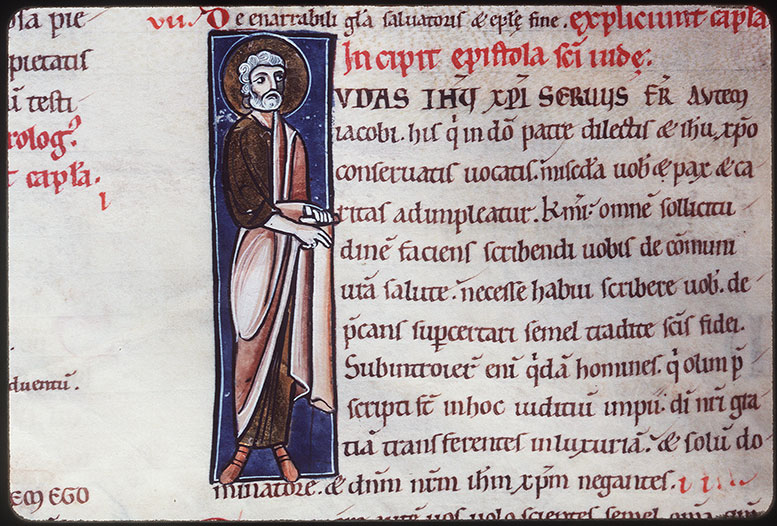 ola pie
pietatis
ū testi
rolog⁹
t capľa.
duentū.
EM EGO
vii. De enarrabili gľa saluatoris & eplę fine. expliciunt capľa
Incipit epistola scī iudę:
VDAS IHV XPI SERVUS FR̄ AVTEM
iacobi. his q̇ in dō patre dilectis & ihu xpo
conseruatis uocatis. misc̄da uob̄ & pax & ca
ritas adimpleatur. Km̄i. omnē sollicitu
dinē faciens scribendi uobis de cōmuni
urā salute. necesse habui scribere uob̄. de
p̄cans supcertari semel tradite scīs fidei.
Subintroier̄ enī q̇dā homines. q̇ olim p̄
scripti st̄ in hoc iudiciū impii. dī nrī gra
tiā transferentes in luxuriā. & solū do
minatorē. & dnm̄ nrm̄ ihm̄ xpm̄ negantes.